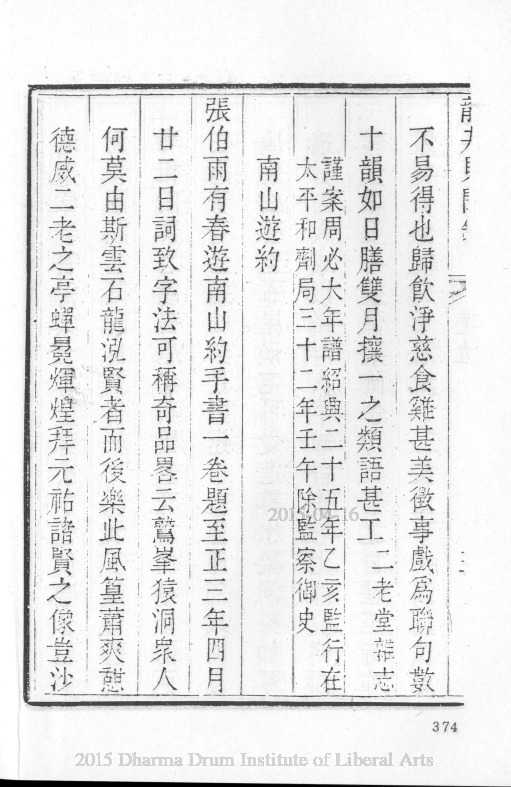 龍井見聞錄
不易得也歸飲淨慈食雞甚美徵事戲爲聯句數
十韻如日膳雙月攘一之類語甚工 二老堂雜志
謹案周必大年譜紹興二十五年乙亥監行在
太平和劑局三十二年壬午除監察御史
南山遊約
張伯雨有春遊南山約手書一卷題至正三年四月
廿二日詞致字法可稱奇品畧云鷲峯猿洞衆人
何莫由斯雲石龍泓賢者而後樂此風篁蕭爽憩
德威二老之亭蟬冕煇煌拜元祐諸賢之像豈沙
374
2015/04/16
2015 Dharma Drum Institute of Liberal Arts